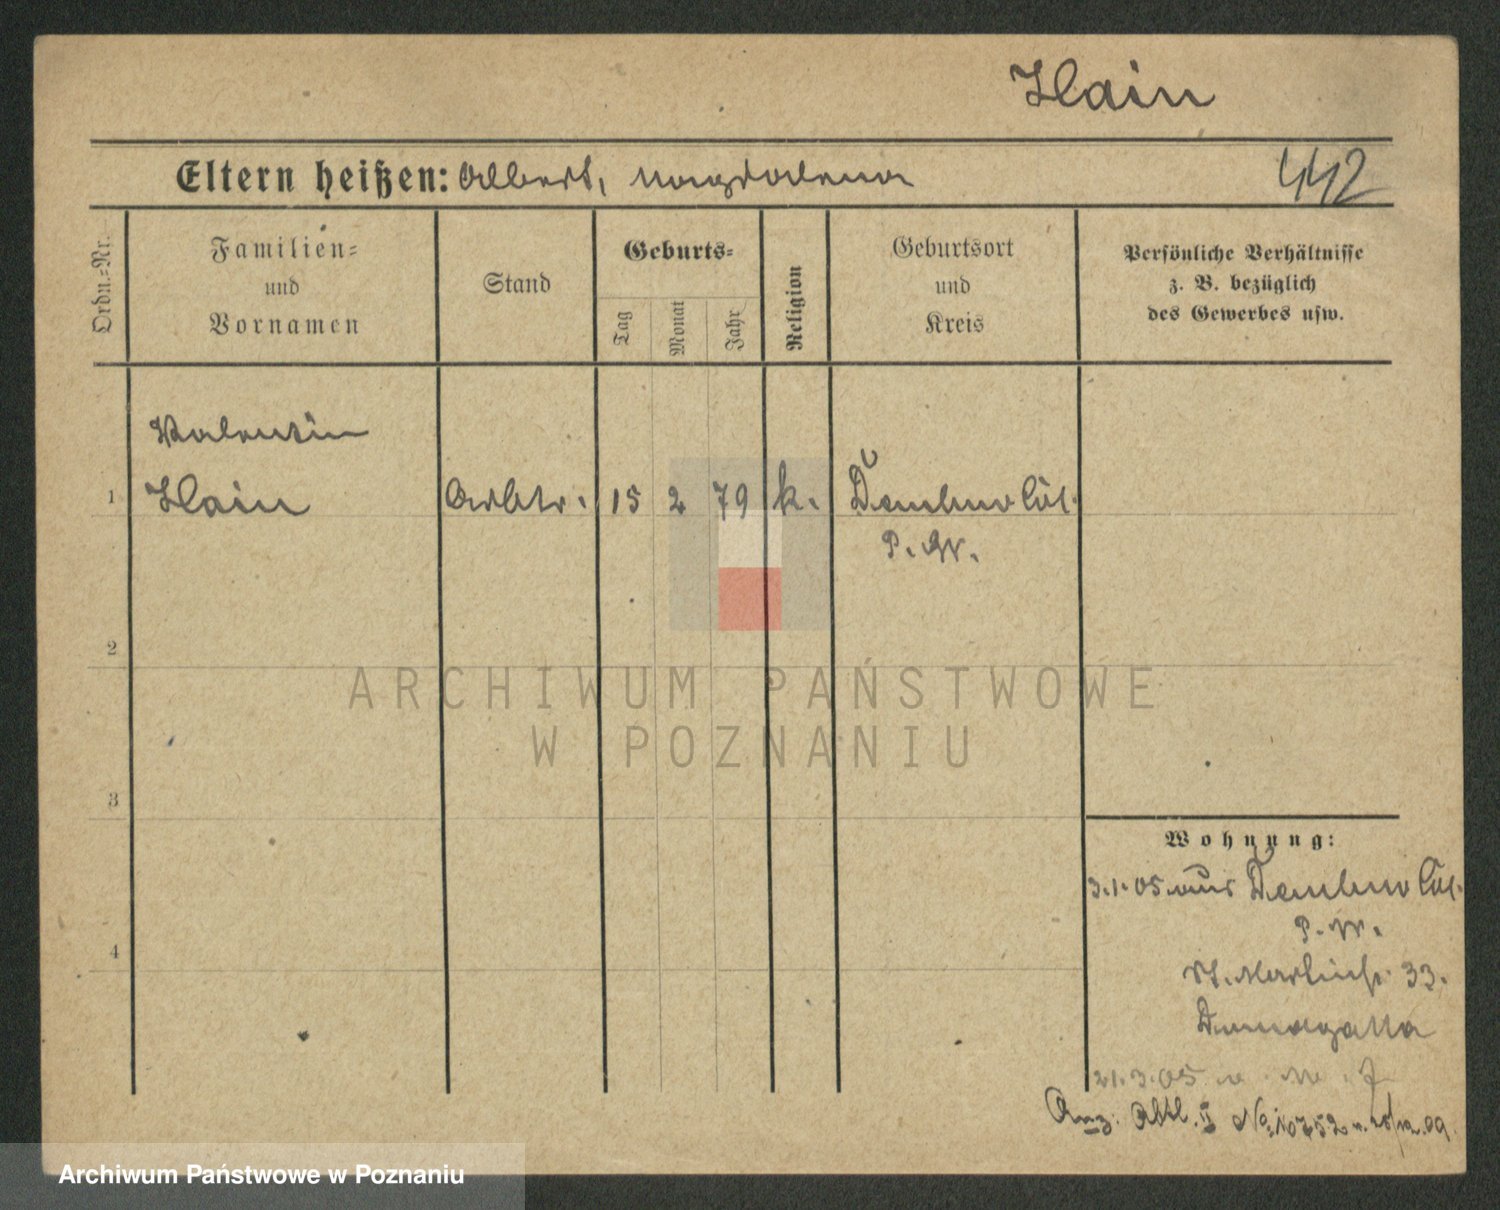 Hain
Eltern heißen: Albert, Magdalena
442
Ordn.=Nr.
Familien=
und
Vornamen
Stand
Geburts=
Tag
Monat
Jahr
Religion
Geburtsort
und
Kreis
Persönliche Verhältnisse
z. B. bezüglich
des Gewerbes usw.
Valentin
1 Hain Arbtr. 15 2 79 k.
P. W.
2
3
4
Wohnung:
3.1.05 aus
P. W.
St. Martinstr. 33.
21.3.05
Anz. Abtl. II No
ARCHIWUM PAŃSTWOWE
W POZNANIU
Archiwum Państwowe w Poznaniu